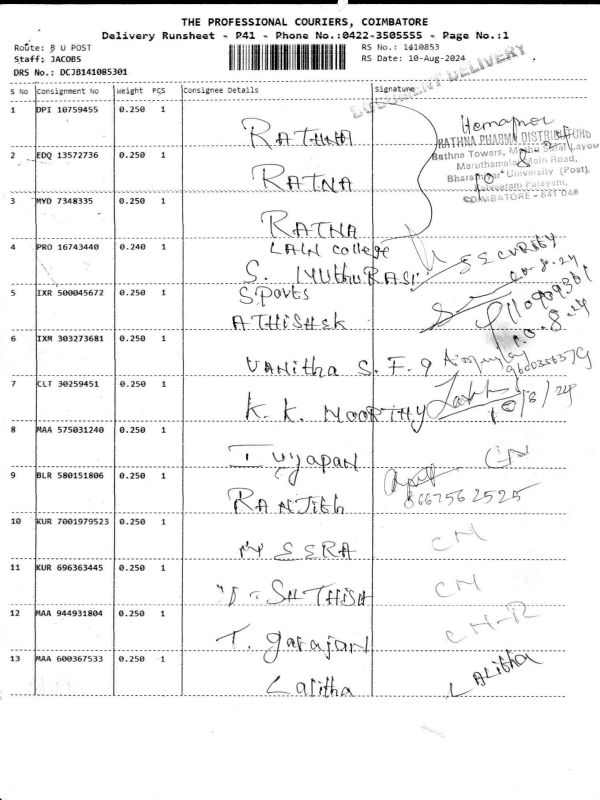 THE PROFESSIONAL COURIERS, COIMBATORE
Delivery Runsheet - P41 - Phone No.:0422-3505555 - Page No.:1
Route: B U POST
Staff: JACOBS
DRS No.: DCJB141085301
RS No.: 1410853
RS Date: 10-Aug-2024
DOCUMENT DELIVERY
S No Consignment No Weight PCS Consignee Details Signature
1 DPI 10759455 0.250 1
RATHNA
RATHNA PHARMA DISTRIBUTORS
2 EDQ 13572736 0.250 1
RATNA
Rathna Towers,
Maruthamalai Main Road,
University (Post),
COIMBATORE - 641 046
3 MYD 7348335 0.250 1
RATNA
4 PRO 16743440 0.240 1
LAW College
S. MUthURASI
SECURITY
10.8.24
5 IXR 500045672 0.250 1
Sports
ATHISHEK
10.8.24
6 IXM 303273681 0.250 1
VANitha S. F. 9
7 CLT 30259451 0.250 1
K. K. MOORTHY
10/8/24
8 MAA 575031240 0.250 1
Iuyapan
CN
9 BLR 580151806 0.250 1
RANJith
8667562525
10 KUR 7001979523 0.250 1
MEERA
CN
11 KUR 696363445 0.250 1
SHTHISH
CN
12 MAA 944931804 0.250 1
T. garajan
CN-R
13 MAA 600367533 0.250 1
Lalitha
LALitha